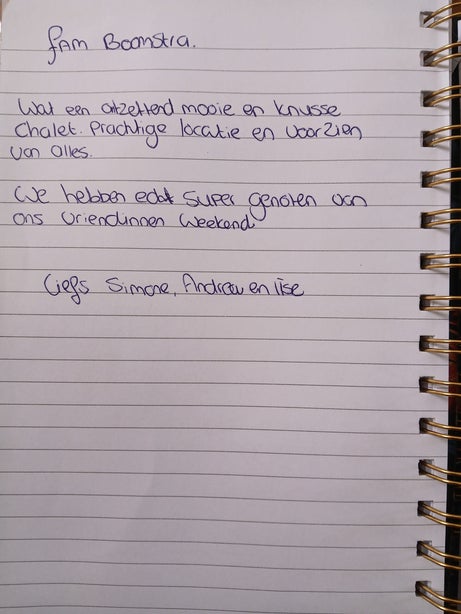 fam Boomstra.
Wat een ontzettend mooie en knusse
Chalet. Prachtige locatie en voorzien
van alles.
We hebben echt super genoten van
ons vriendinnen weekend
Liefs Simone, Andrea en Ilse